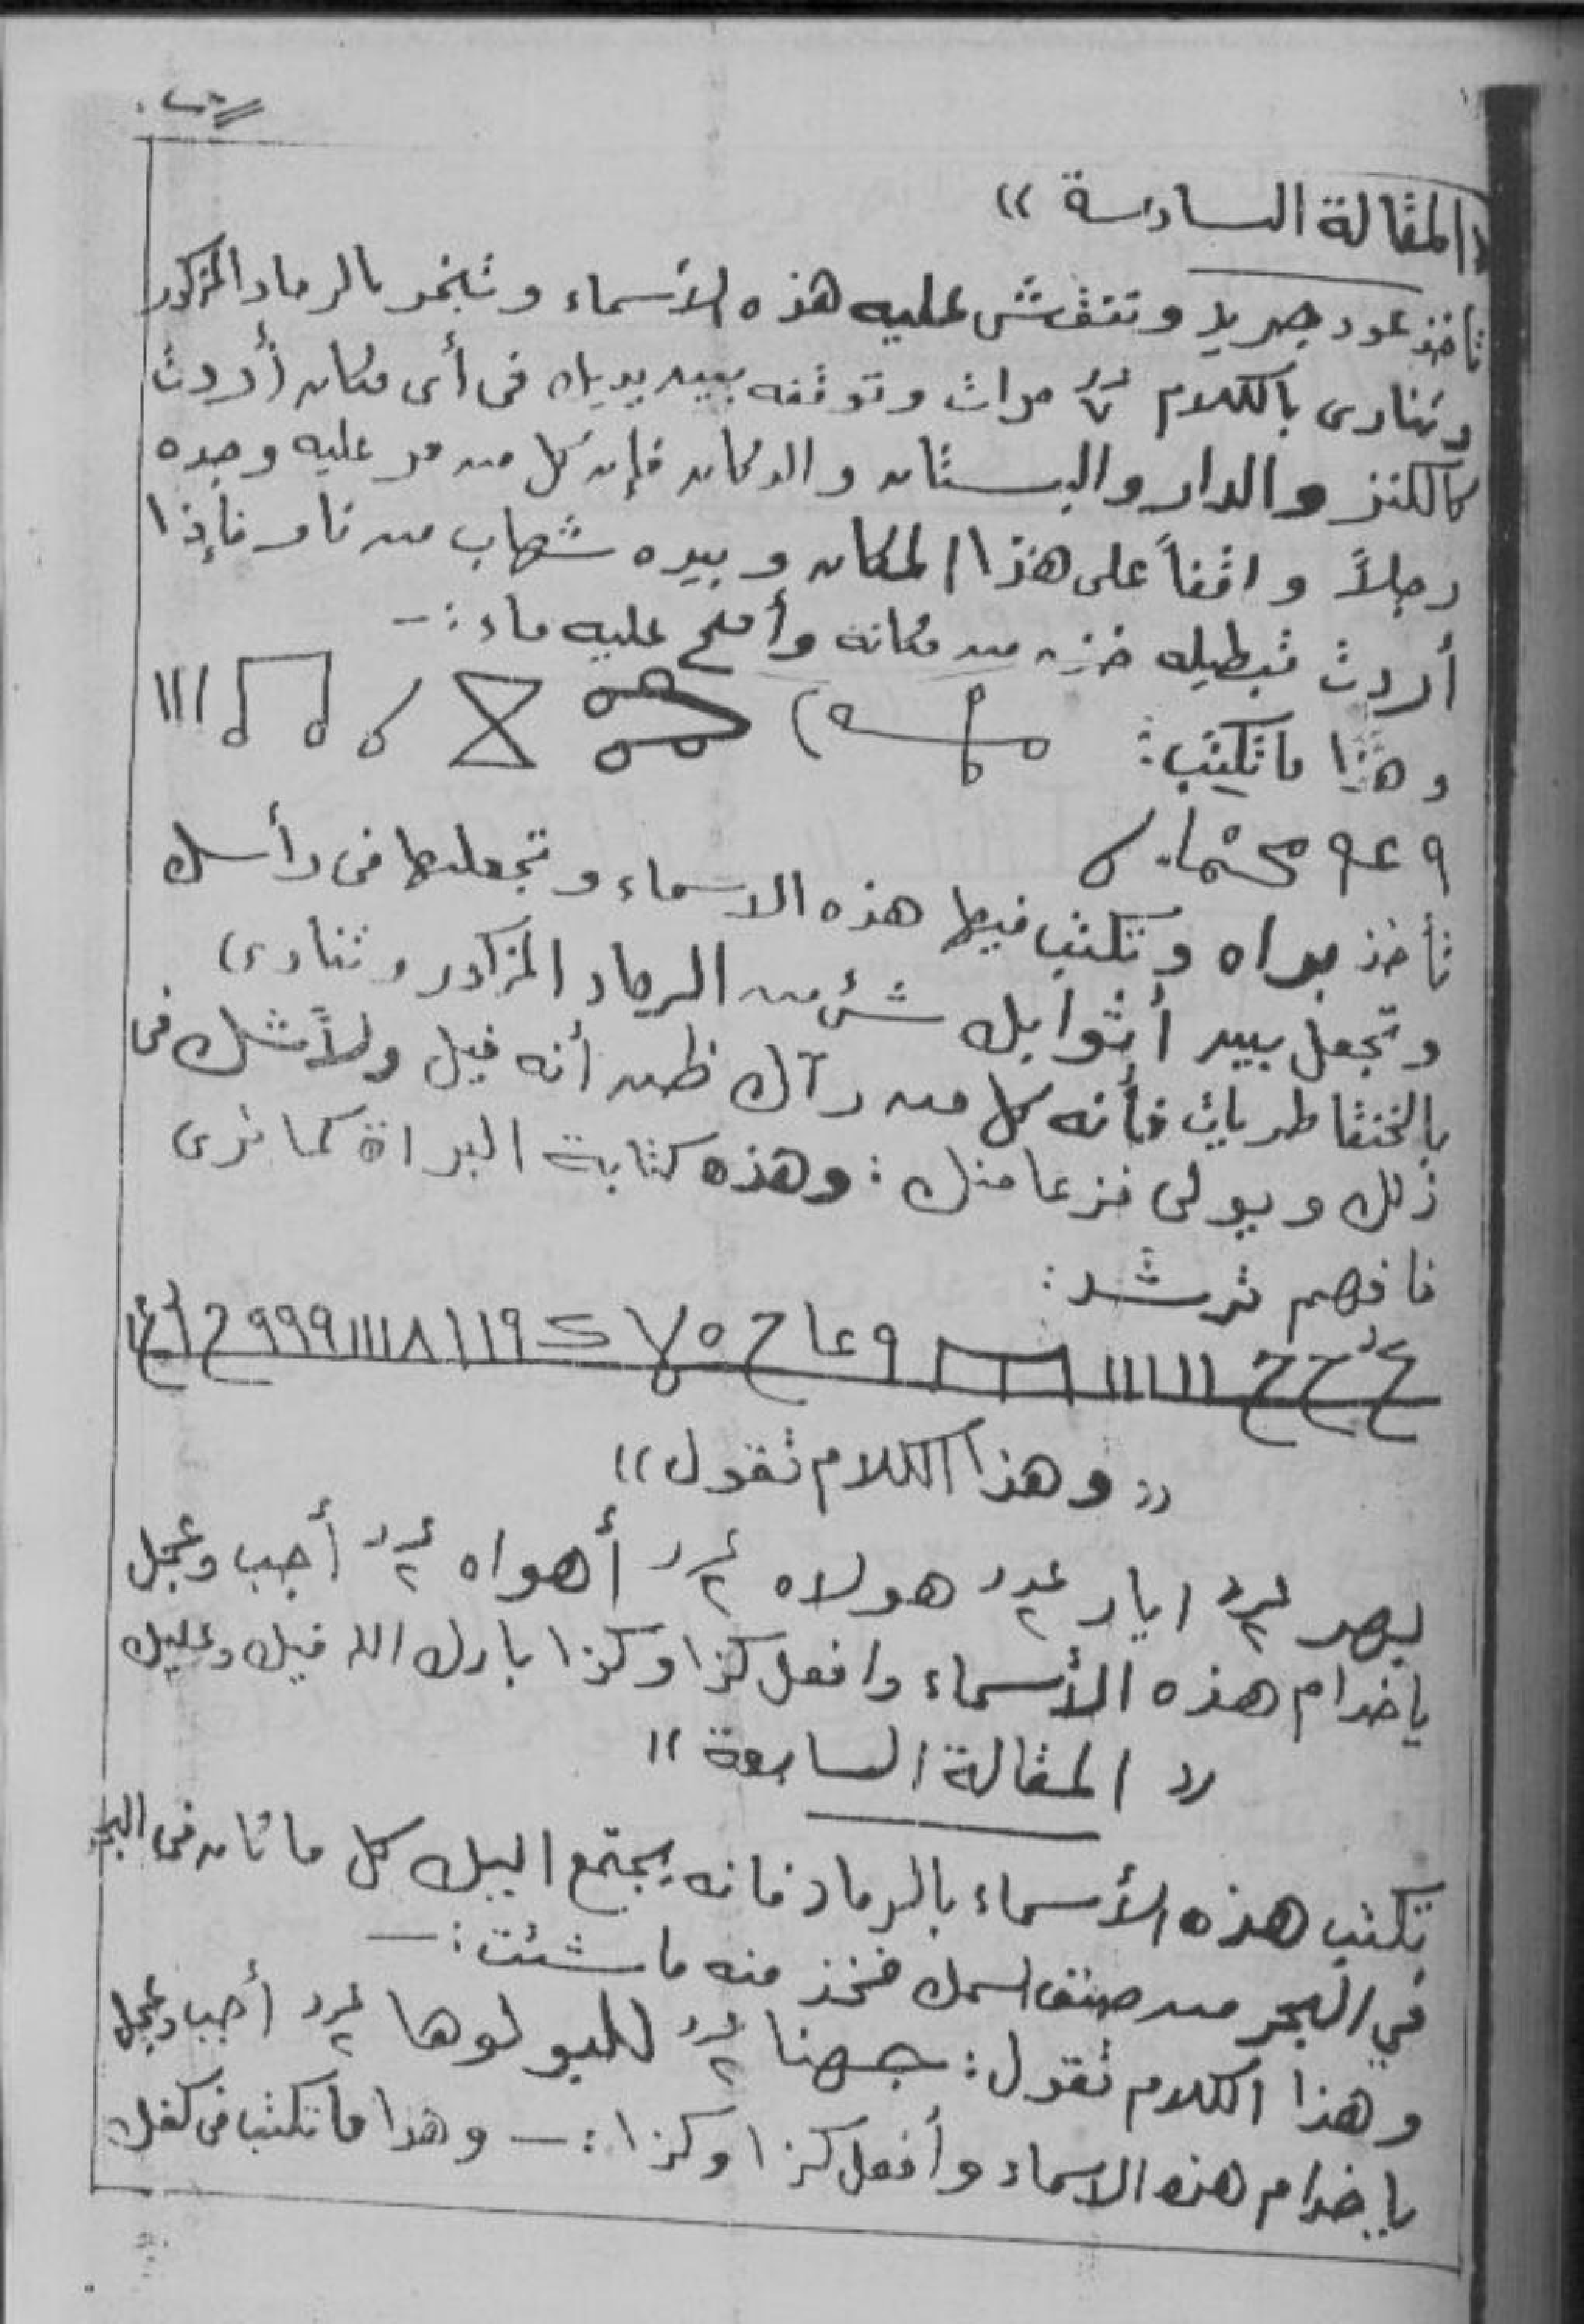 «المقالة السادسة»
تأخذ عود جريد وتنقش عليه هذه الأسماء وتبخر بالرماد المذكور
وتنادى بالكلام عدد ٧ مرات وتوقفه بين يديك فى أى مكان أردت
كالكنز والدار والبستان والدكان فإن كل من مر عليه وجده
رجلاً واقفاً على هذا المكان وبيده شهاب من نار فإذا
أردت تبطيله خذه من مكانه وأمح عليه ماء :ــ
وهذا ماتكتب :
٩ ٤ ٩
تأخذ براه وتكتب فيها هذه الاسماء وتجعلها فى رأسك
وتجعل بين أثوابك شئ من الرماد المذكور وتنادى
بالخنقاطريات فأنه كل من رآك ظن أنه فيل ولاشك فى
ذلك ويولى فزعا منك : وهذه كتابة البراة كما ترى
فافهم ترشد :
ع ح ح ١١١١١١ ٩ ع ا ح ٥ ٩١١١٨١١١١٩٩٩ ح
«وهذا الكلام تقول»
بهر عدد ٢ ايار عدد ٢ هولاه عدد ٢ أهواه عدد ٢ أجب وعجل
ياخدام هذه الأسماء وافعل كذا وكذا بارك الله فيك وعليك
« المقالة السابعة »
تكتب هذه الأسماء بالرماد فانه يجتمع اليك كل ماكان فى البحر
في البحر من صنف السمك فخذ منه ماشئت :ــ
وهذا الكلام تقول : جهنا عدد ٢ للبولوها عدد ٢ أجب وعجل
ياخدام هذه الاسماء وأفعل كذا وكذا :ــ وهذا ماتكتب فى كفك